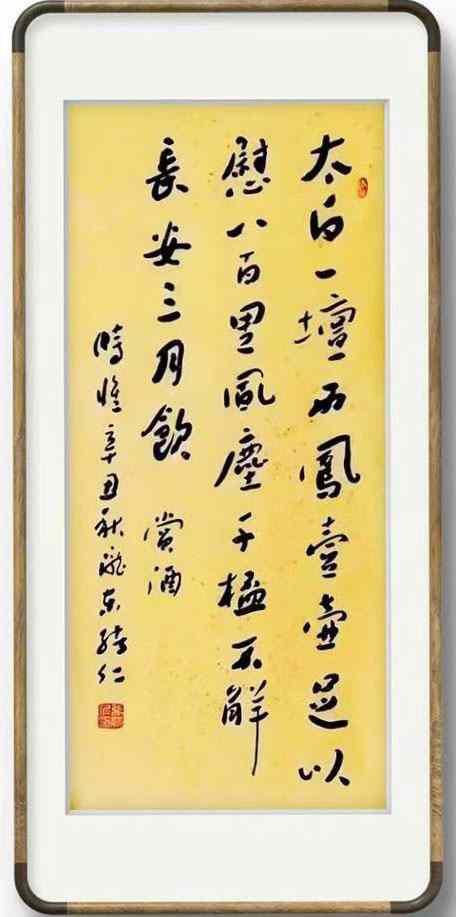 太白一壇西鳳壹壷足以
慰八百里風塵千楹不解
長安三月飲 賞酒
時惟辛丑秋龍東緒仁